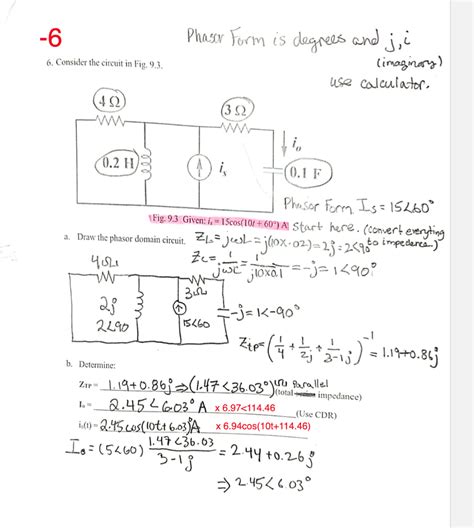 -6
Phasor Form is degrees and j,i
(imaginary)
use calculator.
6. Consider the circuit in Fig. 9.3.
4 Ω
3 Ω
0.2 H
i_s
i_o
0.1 F
Phasor Form I_s = 15∠60°
Fig. 9.3 Given: i_s = 15cos(10t + 60°) A
Start here. (convert everyting
to impedence.)
a. Draw the phasor domain circuit.
Z_L = jωL = j(10x.02) = 2j = 2<90
Z_C = 1/jωC = 1/j10x0.1 = -j = 1<90°
4Ω
3Ω
2j
2∠90
15<60
-j = 1<-90°
Z_TP = (1/4 + 1/2j + 1/3-1j)^-1 = 1.19+0.86j
b. Determine:
Z_TP = 1.19+0.86j ⇒ (1.47<36.03°) Parallel
(total impedance)
I_o = 2.45<6.03° A x 6.97<114.46 (Use CDR)
i_o(t) = 2.45cos(10t+6.03°)A x 6.94cos(10t+114.46)
I_o = (5<60) 1.47<36.03/3-1j = 2.44+0.26j
⇒ 2.45<6.03°